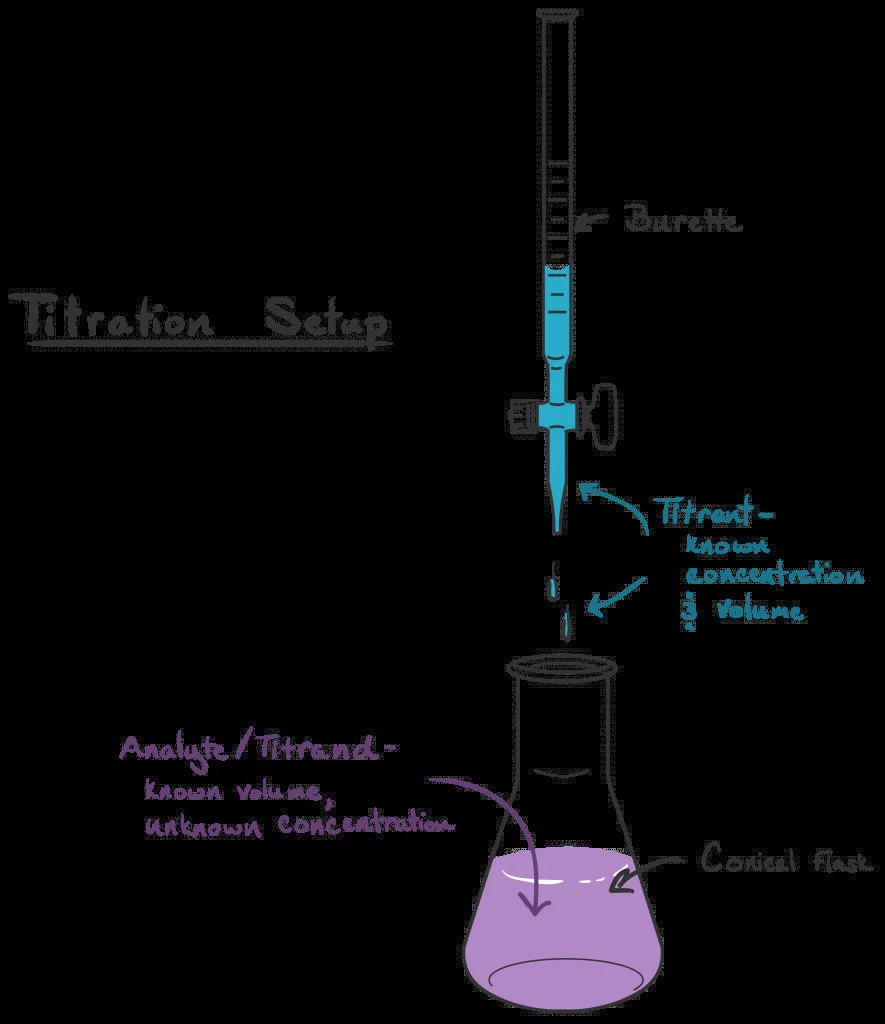 Burette
Titration Setup
Titrant-
known
concentration
& volume
Analyte/Titrand-
known volume,
unknown concentration
Conical Flask